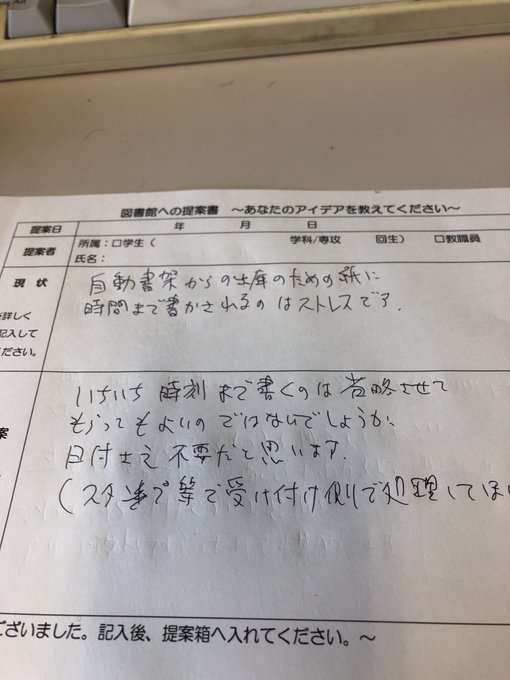 図書館への提案書　～あなたのアイデアを教えてください～
提案日　年　月　日
提案者　所属：口学生（　学科/専攻　回生）　口教職員
氏名：
現　状
自動書架からの出庫のための紙に
時間まで書かされるのはストレスです.
を詳しく
記入して
ください。
案
いちいち 時刻 まで 書くのは 省略させて
もらっても よいの ではないでしょうか.
日付さえ 不要だと思います.
(スタンプ等で受け付け側で処理してほし
ございました。記入後、提案箱へ入れてください。～